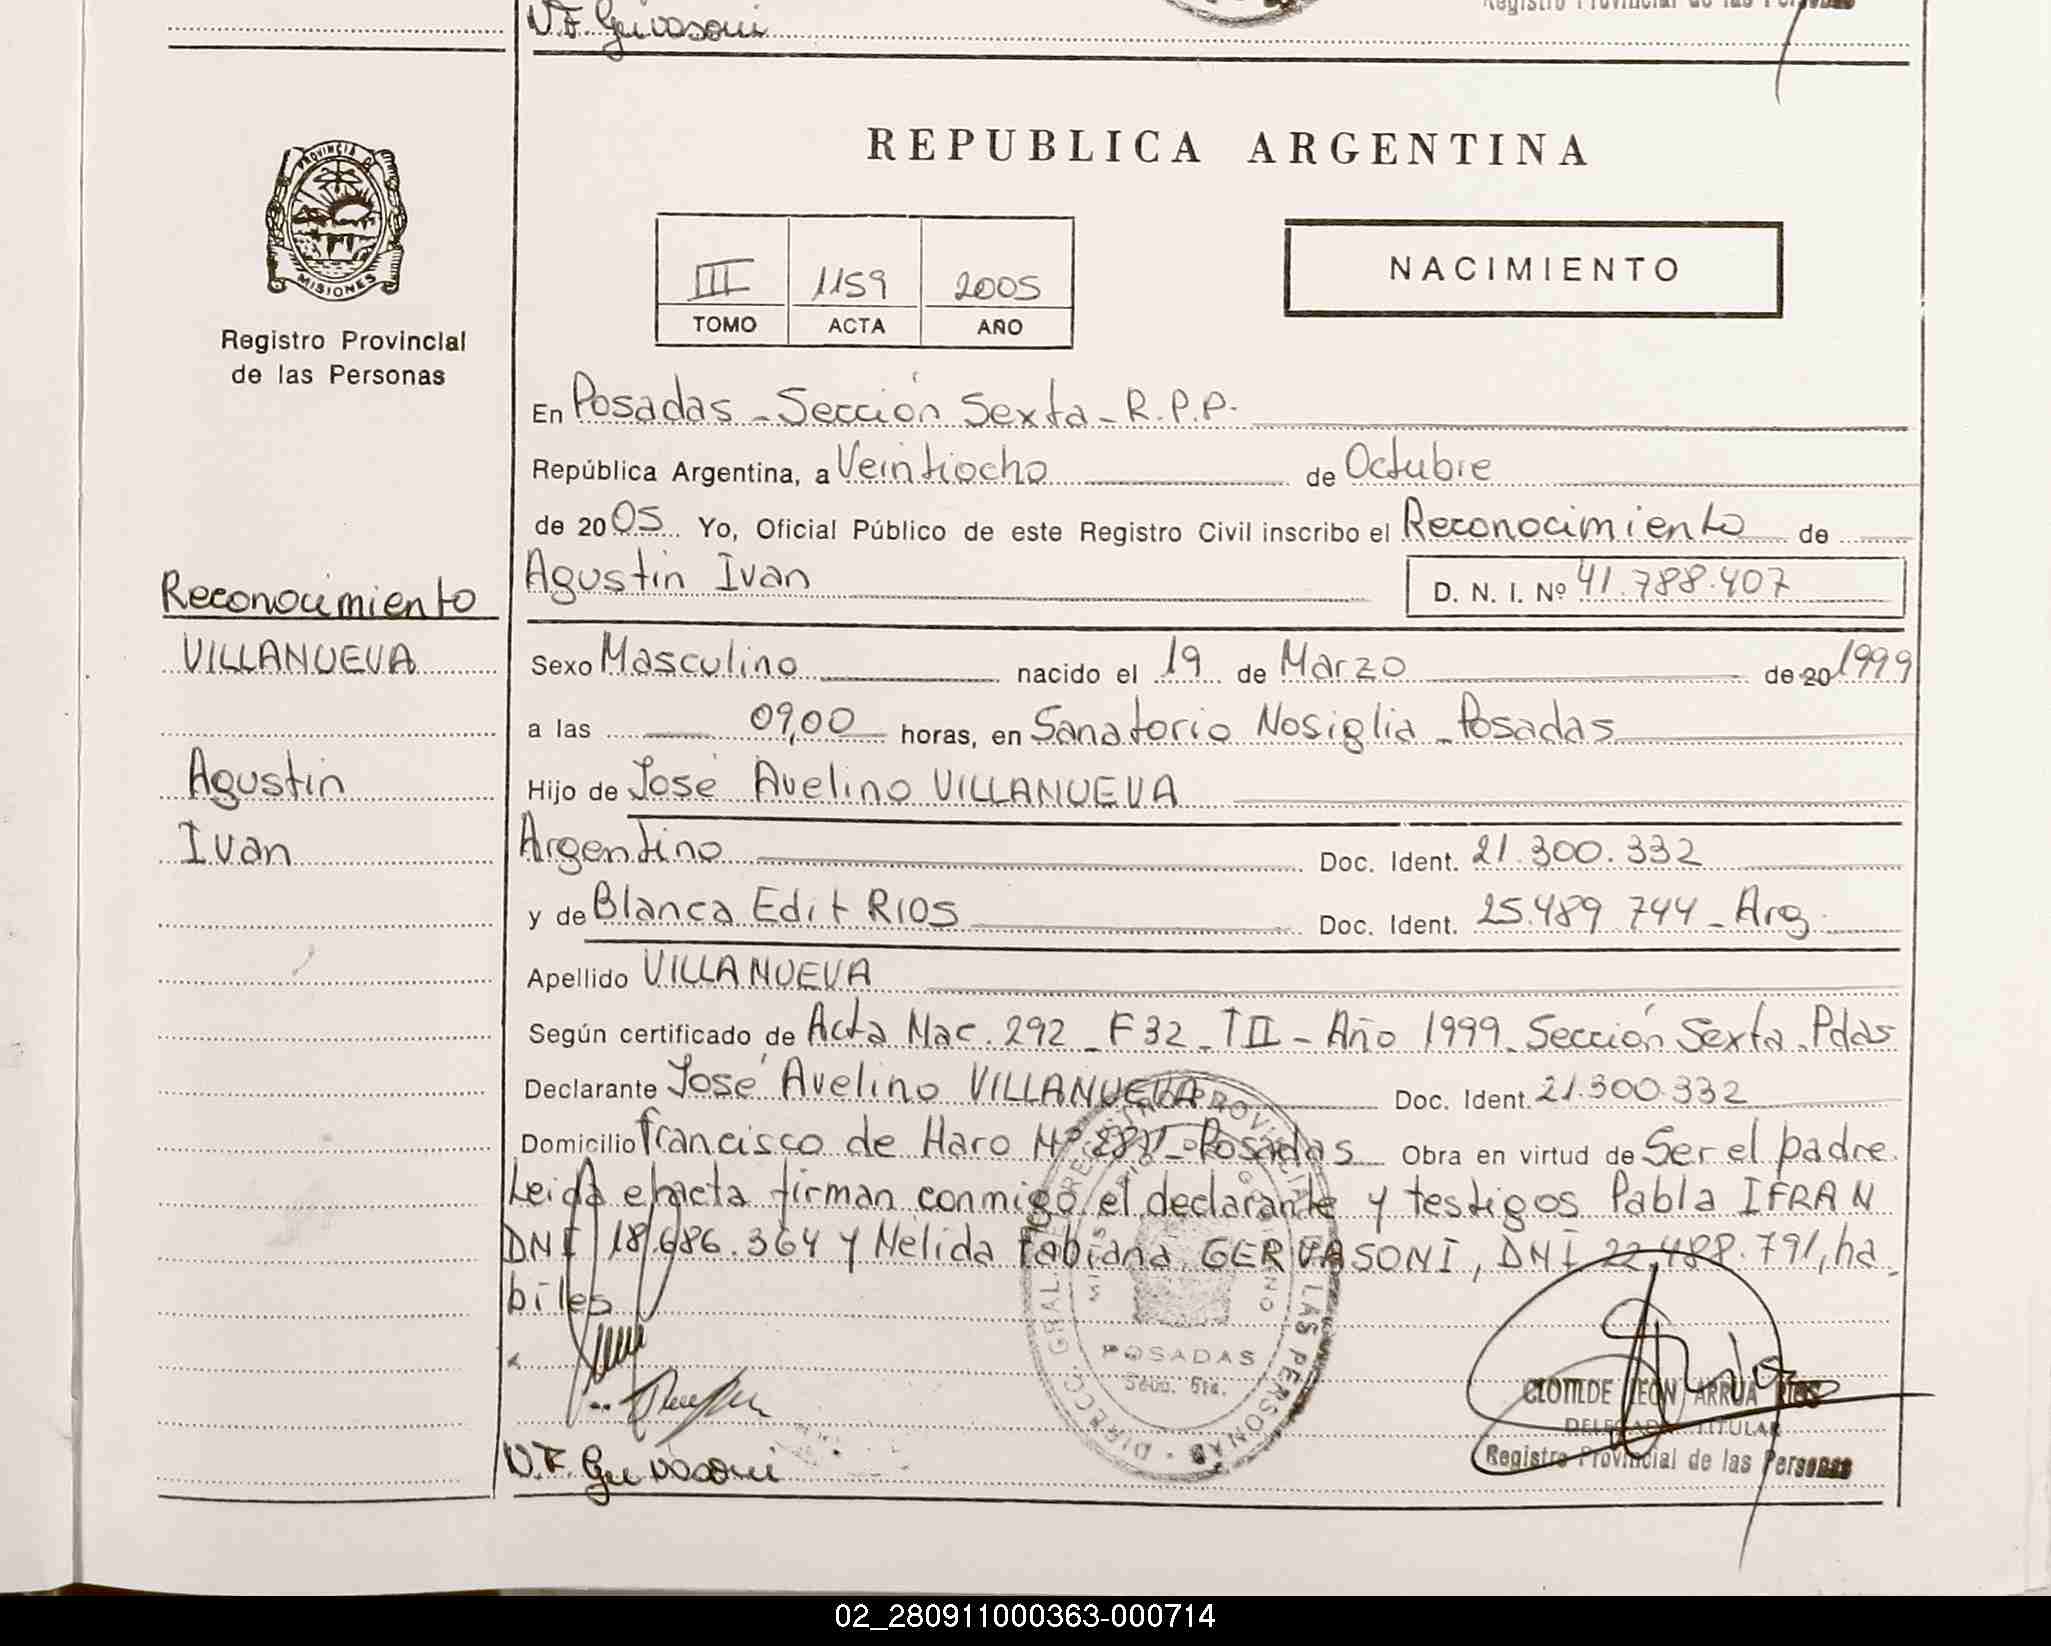 N.F. Gervasoni
Registro Provincial de las Personas
PROVINCIA D
MISIONES
Registro Provincial
de las Personas
REPUBLICA ARGENTINA
III 1159 2005
TOMO ACTA AÑO
NACIMIENTO
En Posadas - Sección Sexta - R.P.P.
República Argentina, a Veintiocho de Octubre
de 2005 Yo, Oficial Público de este Registro Civil inscribo el Reconocimiento de
Agustin Ivan D. N. I. Nº 41.788.407
Reconocimiento
VILLANUEVA
Agustin
Ivan
Sexo Masculino nacido el 19 de Marzo de 20 1999
a las 09,00 horas, en Sanatorio Nosiglia - Posadas
Hijo de José Avelino VILLANUEVA
Argentino Doc. Ident. 21.300.332
y de Blanca Edit RIOS Doc. Ident. 25.489.744 - Arg.
Apellido VILLANUEVA
Según certificado de Acta Nac. 292 - F 32 - T II - Año 1999 - Sección Sexta - Pdas
Declarante José Avelino VILLANUEVA Doc. Ident. 21.300.332
Domicilio Francisco de Haro Nº - Posadas Obra en virtud de Ser el padre
Leida el acta firman conmigo el declarante y testigos Pabla IFRAN
DNI 18.686.364 y Nelida Fabiana GERVASONI, DNI 22.488.791, ha
biles
DIRECC. GRAL. REGISTRO PROVINCIAL DE LAS PERSONAS
MINISTERIO GOBIERNO
POSADAS
Secc. 6ta.
N.F. Gervasoni
CLOTILDE LEON ARRUA RIOS
DELEGADA TITULAR
Registro Provincial de las Personas
02_280911000363-000714